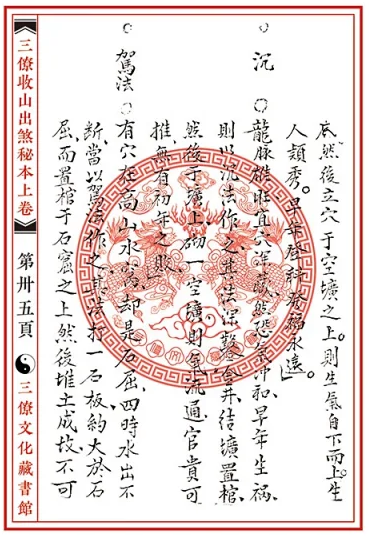 底然後立穴于空壙之上。則生氣自下而上。生
人穎秀。早年登科發福永遠。
○ 沉 ○ 龍脉雄壯宜穴深藏然恐氣冲和早年生禍、
則以沉法作之其法深鑿金井、结壙置棺、
然後于壙上、砌一空壙、則氣流通官貴可
推、無有初年之敗、
○ 駕法 ○ 有穴在高山水窩、却是石屈、四時水出不
断、當以駕法作之其法打一石板約大於石
屈、而置棺于石窟之上然後堆土成坟、不可
三僚收山出煞秘本上卷
第卅五頁
三僚文化藏書館